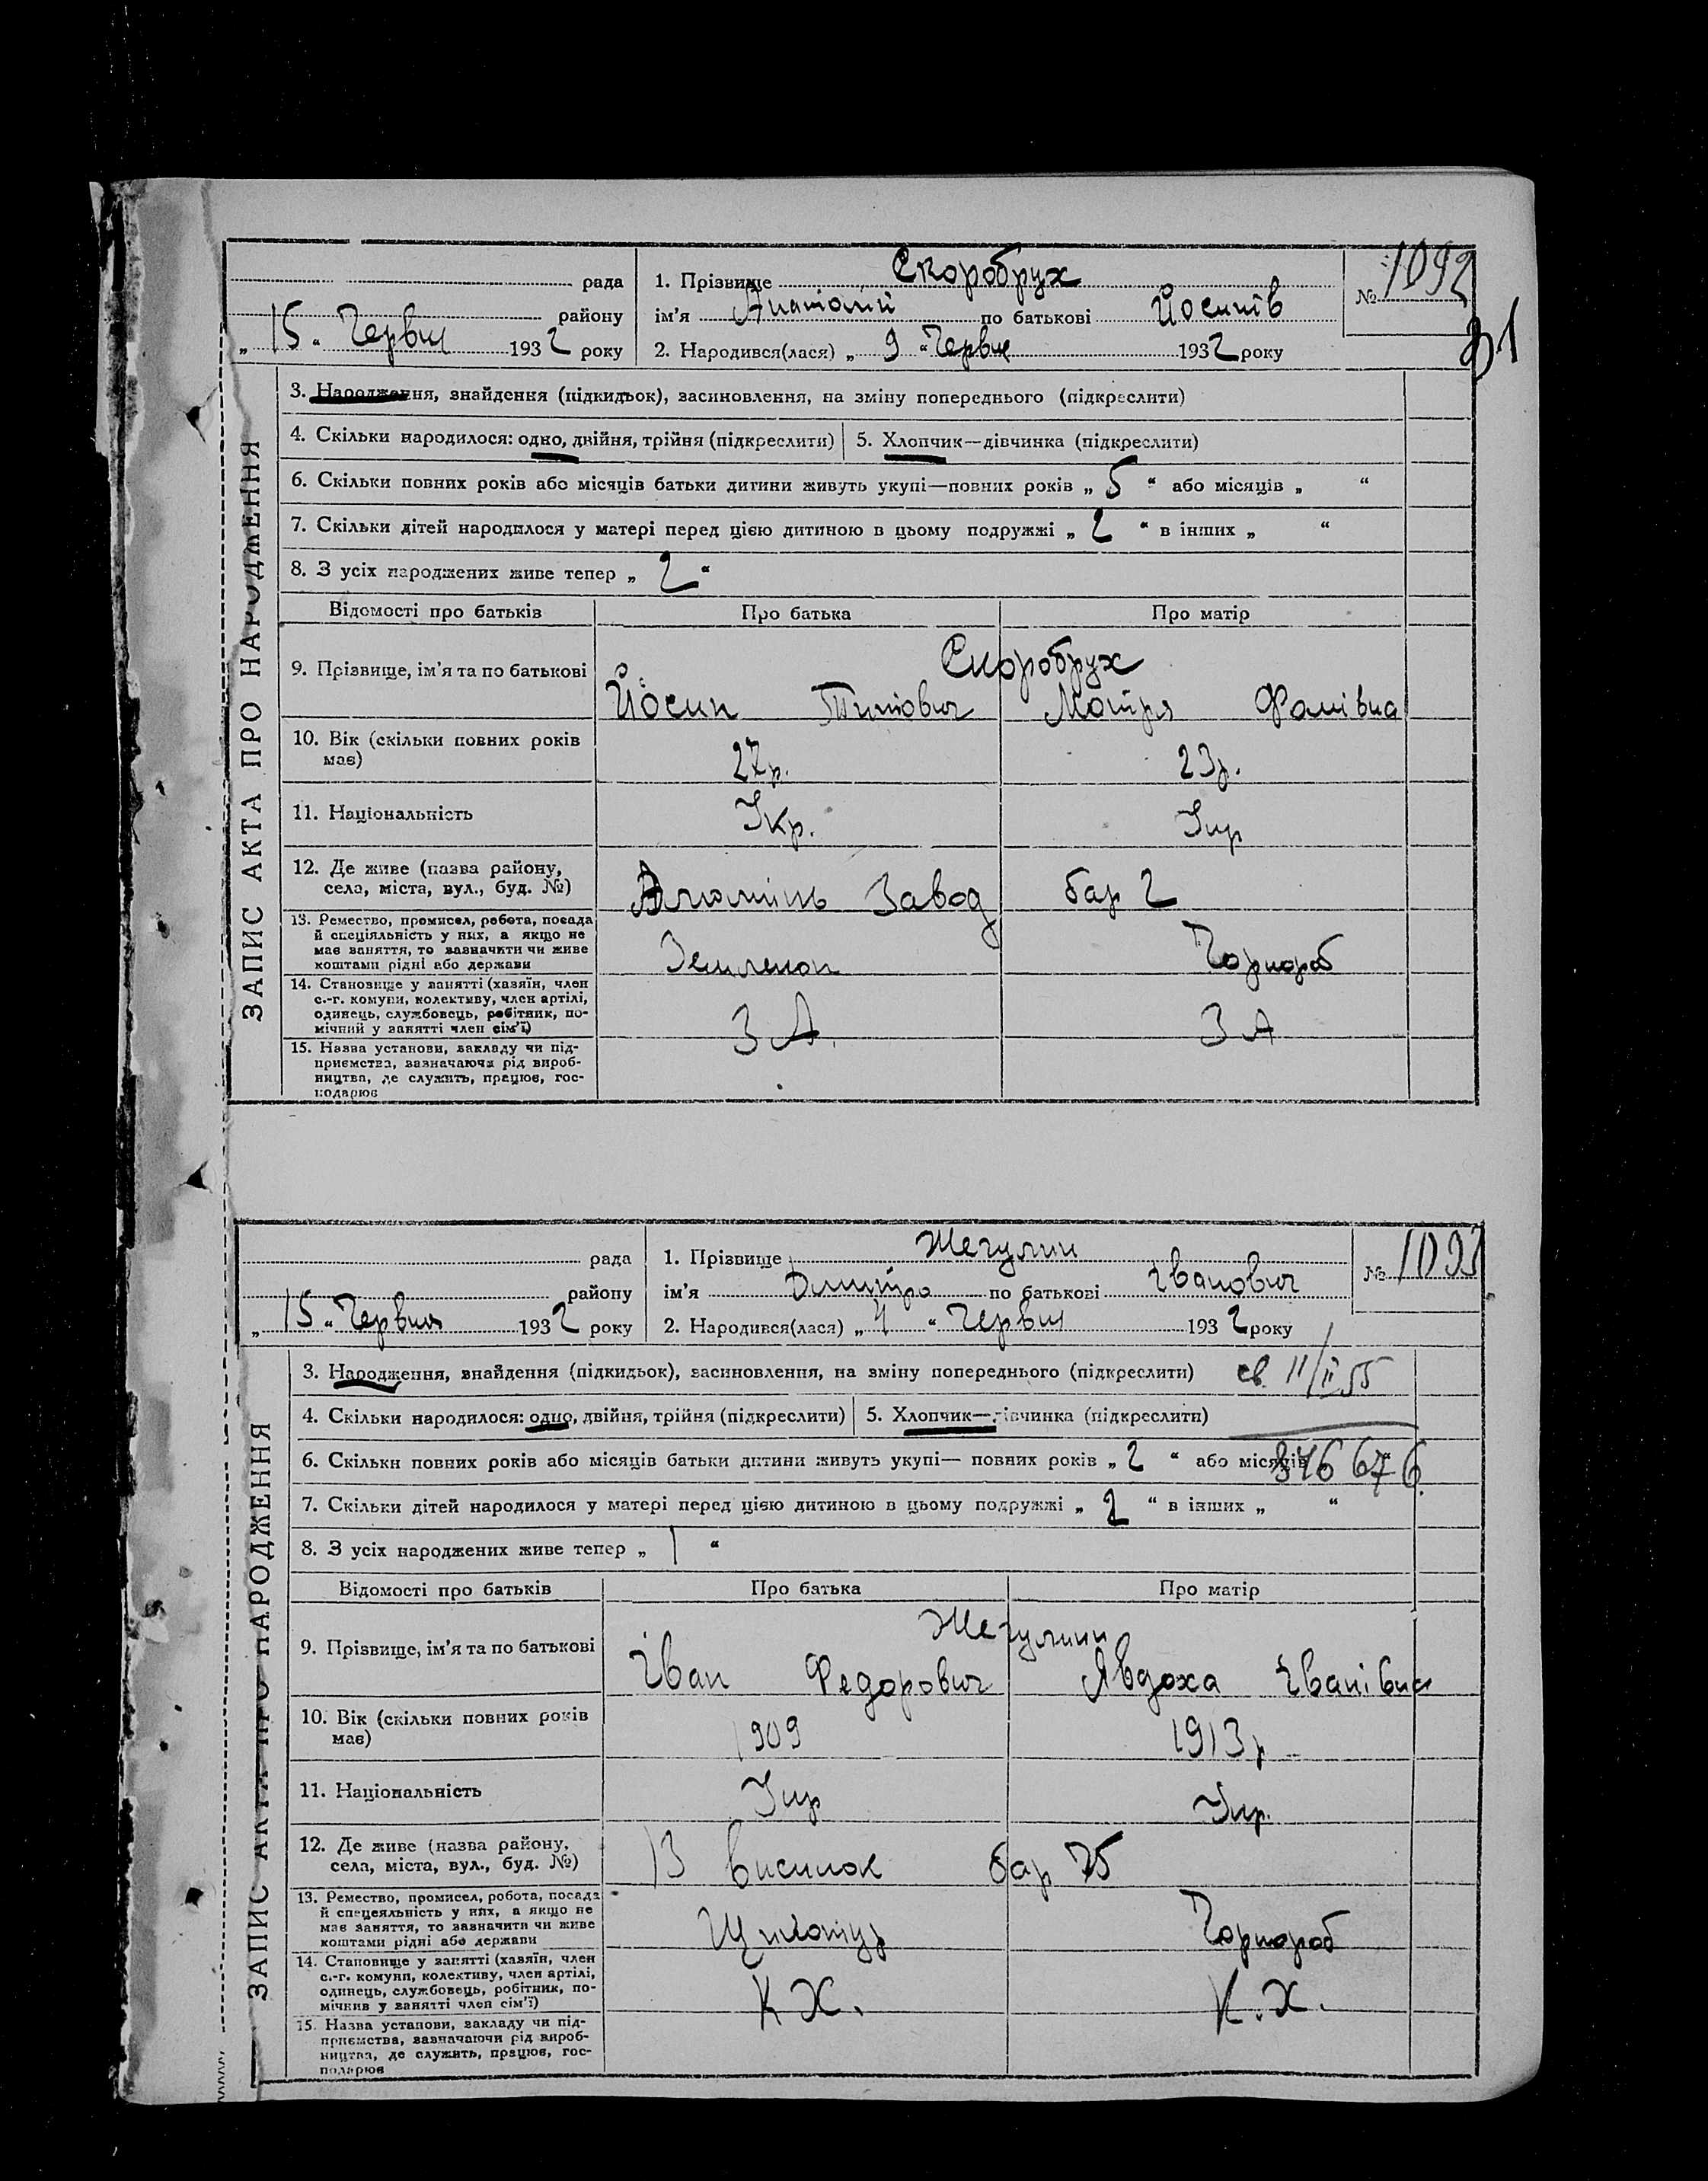 рада
району
„ 15 “ Червц 1932 року
1. Прізвище Скоробрух
ім’я Анатолій по батькові Йосипів
2. Народився(лася) „ 9 “ Червця 1932 року
№ 1092
31
ЗАПИС АКТА ПРО НАРОДЖЕННЯ
3. Народження, знайдення (підкидьок), засиновлення, на зміну попереднього (підкреслити)
4. Скільки народилося: одно, двійня, трійня (підкреслити) 5. Хлопчик—дівчинка (підкреслити)
6. Скільки повних років або місяців батьки дитини живуть укупі—повних років „ 5 “ або місяців „ “
7. Скільки дітей народилося у матері перед цією дитиною в цьому подружжі „ 2 “ в інших „ “
8. З усіх народжених живе тепер „ 2 “
Відомості про батьків Про батька Про матір
Скоробрух
9. Прізвище, ім’я та по батькові Йосип Титович Мотря Фомівна
10. Вік (скільки повних років має) 27р. 23р.
11. Національність Укр. Укр
12. Де живе (назва району, села, міста, вул., буд. №) Алюмінь Завод бар 2
13. Ремество, промисел, робота, посада
й спеціяльність у них, а якщо не
має заняття, то зазначити чи живе
коштами рідні або держави
Землекоп Чорнороб
14. Становище у занятті (хазяїн, член
с.-г. комуни, колективу, член артілі,
одинець, службовець, робітник, по-
мічний у занятті член сім’ї)
З А. З А
15. Назва установи, закладу чи під-
приємства, зазначаючи рід вироб-
ництва, де служить, працює, гос-
подарює
рада
району
„ 15 “ Червня 1932 року
1. Прізвище Жегулин
ім’я Дмитро по батькові Іванович
2. Народився(лася) „ 4 “ Червця 1932 року
№ 1093
ЗАПИС АКТА ПРО НАРОДЖЕННЯ
3. Народження, знайдення (підкидьок), засиновлення, на зміну попереднього (підкреслити) св. 11/II 55
4. Скільки народилося: одно, двійня, трійня (підкреслити) 5. Хлопчик—дівчинка (підкреслити)
6. Скільки повних років або місяців батьки дитини живуть укупі— повних років „ 2 “ або місяців 376676
7. Скільки дітей народилося у матері перед цією дитиною в цьому подружжі „ 2 “ в інших „ “
8. З усіх народжених живе тепер „ 1 “
Відомості про батьків Про батька Про матір
Жегулини
9. Прізвище, ім’я та по батькові Іван Федорович Явдоха Іванівна
10. Вік (скільки повних років має) 1909 1913р
11. Національність Укр Укр.
12. Де живе (назва району, села, міста, вул., буд. №) 13 висилок бар 75
13. Ремество, промисел, робота, посада
й спецеяльність у них, а якщо не
має заняття, то зазначити чи живе
коштами рідні або держави
Щукатур Чорнороб
14. Становище у занятті (хазяїн, член
с.-г. комуни, колективу, член артілі,
одинець, службовець, робітник, по-
мічнив у занятті член сім’ї)
К Х. К.Х.
15. Назва установи, закладу чи під-
приємства, зазначаючи рід вироб-
ництва, де служить, працює, гос-
подарює